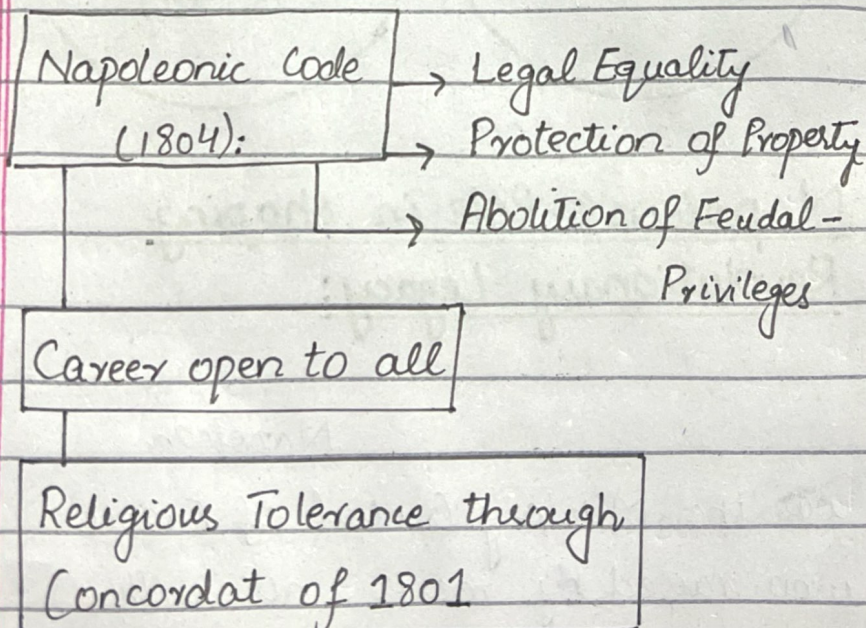 Napoleonic Code → Legal Equality
(1804): → Protection of Property
→ Abolition of Feudal -
Privileges
Career open to all
Religious Tolerance through
Concordat of 1801